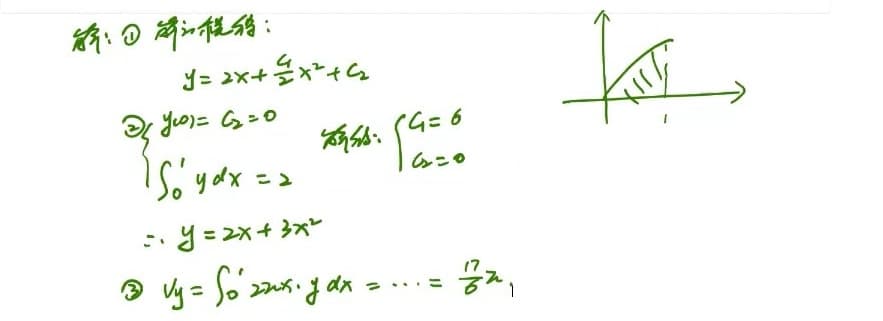 解: ① 解微分方程:
y = 2x + C₁/2 x² + C₂
② { y(0) = C₂ = 0
∫₀¹ y dx = 2
解得: { C₁ = 6
C₂ = 0
∴ y = 2x + 3x²
1
③ Vy = ∫₀¹ 2πx · y dx = ··· = 17/6 π,